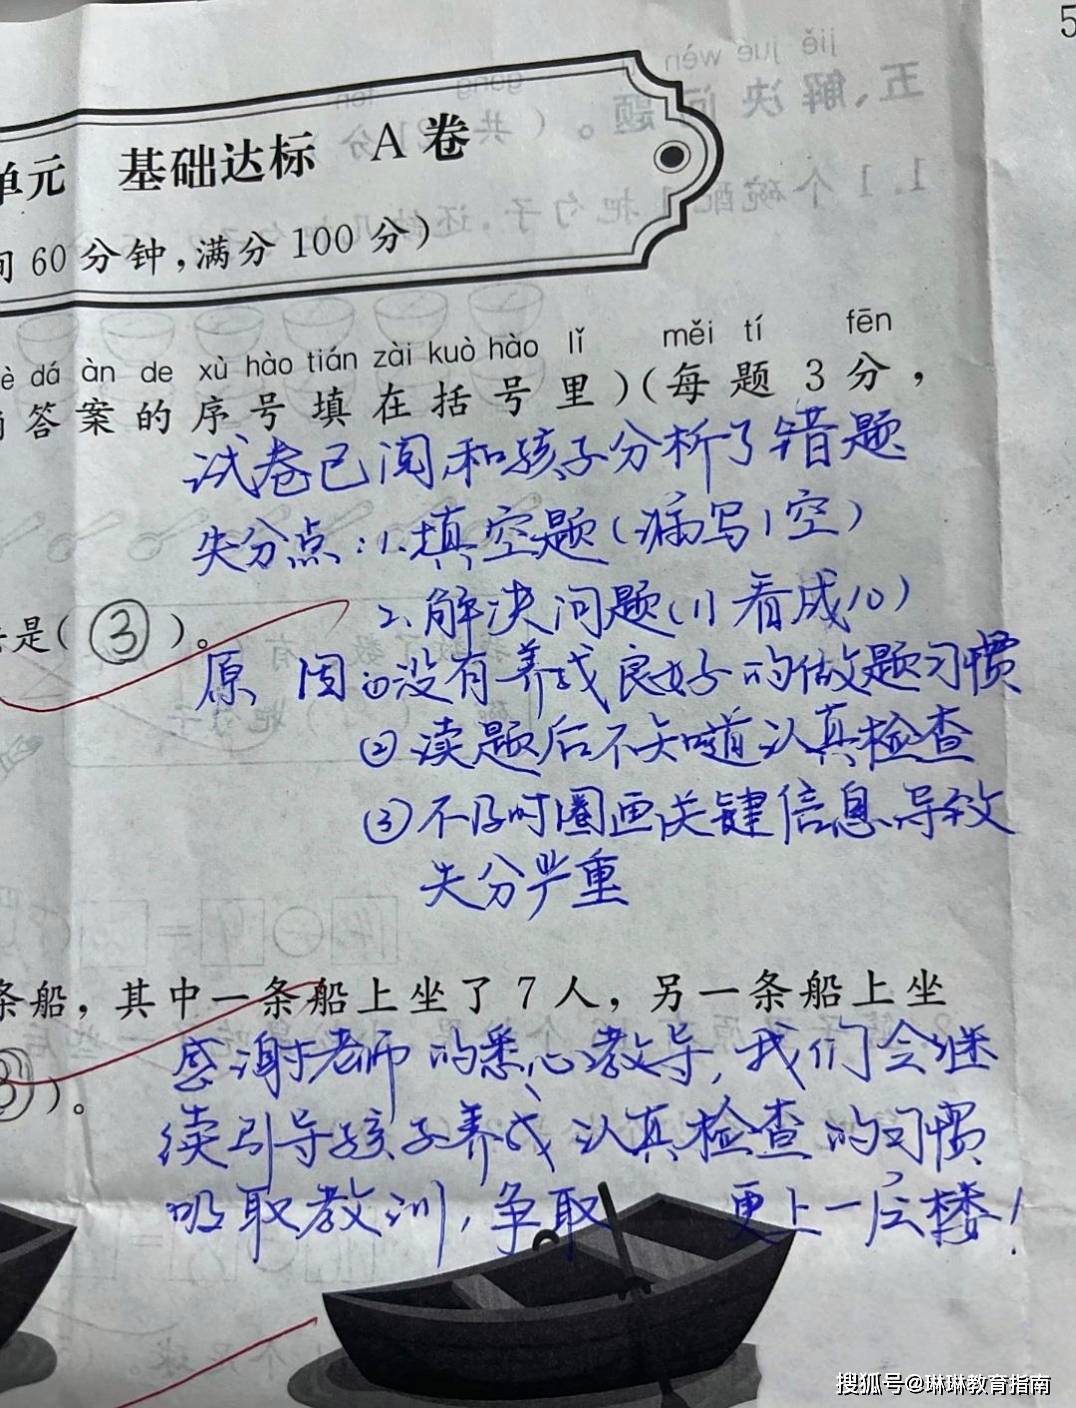 5
单元 基础达标 A 卷
间 60 分钟,满分 100 分)
è dá àn de xù hào tián zài kuò hào lǐ měi tí fēn
答案的序号填在括号里)(每题 3 分,
试卷已阅,和孩子分析了错题
失分点:1.填空题(漏写1空)
2.解决问题(11看成10)
是( ③ )。
原因①没有养成良好的做题习惯
②读题后不知道认真检查
③不及时圈画关键信息,导致
失分严重
条船,其中一条船上坐了 7 人,另一条船上坐
感谢老师的悉心教导,我们会继
)。
续引导孩子养成认真检查的习惯
吸取教训,争取 更上一层楼!
搜狐号@琳琳教育指南